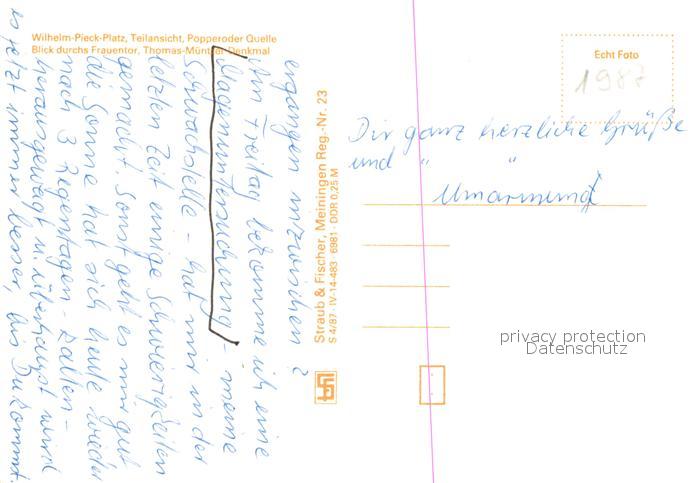 Wilhelm-Pieck-Platz, Teilansicht, Popperoder Quelle
Blick durchs Frauentor, Thomas-Müntzer-Denkmal
ergangen inzwischen?
Am Freitag bekomme ich eine
Magenuntersuchung, meine
Schwabstelle - hat mir in der
letzten Zeit einige Schwierigkeiten
gemacht. Sonst geht es mir gut
die Sonne hat sich heute wieder
nach 3 Regentagen -
herausgewagt u. überhaupt wird
es jetzt immer besser, bis Du kommst.
Straub & Fischer, Meiningen Reg.-Nr. 23
S 4/87 · IV-14-483 · 6981 · DDR 0,25 M
Echt Foto
1987
Dir ganz herzliche Grüße
und " "
Umarmung
privacy protection
Datenschutz